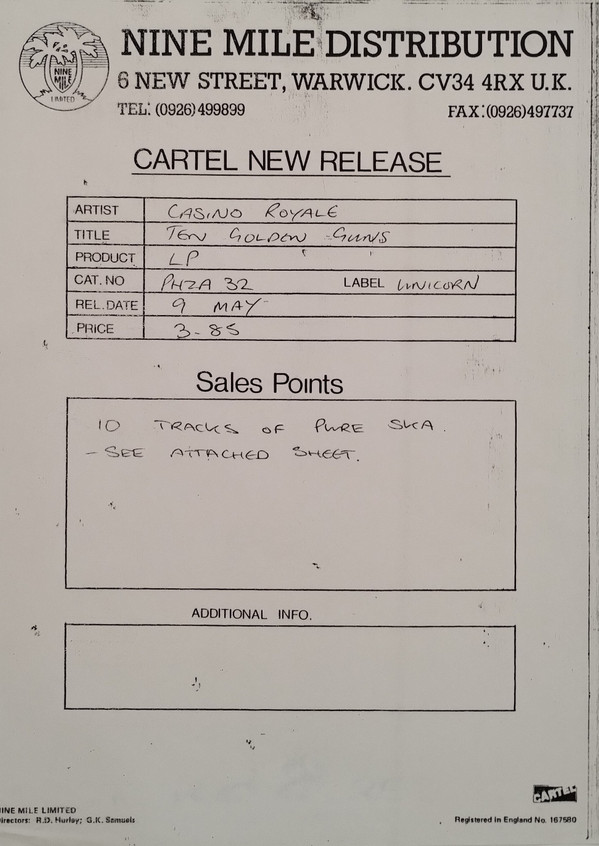 NINE MILE DISTRIBUTION
NINE MILE LIMITED
6 NEW STREET, WARWICK. CV34 4RX U.K.
TEL: (0926) 499899 FAX: (0926) 497737
CARTEL NEW RELEASE
ARTIST CASINO ROYALE
TITLE TEN GOLDEN GUNS
PRODUCT LP
CAT. NO PHZA 32 LABEL UNICORN
REL. DATE 9 MAY
PRICE 3-85
Sales Points
10 TRACKS OF PURE SKA.
- SEE ATTACHED SHEET.
ADDITIONAL INFO.
CARTEL
INE MILE LIMITED
irectors: R.D. Hurley; G.K. Samuels Registered in England No. 167580